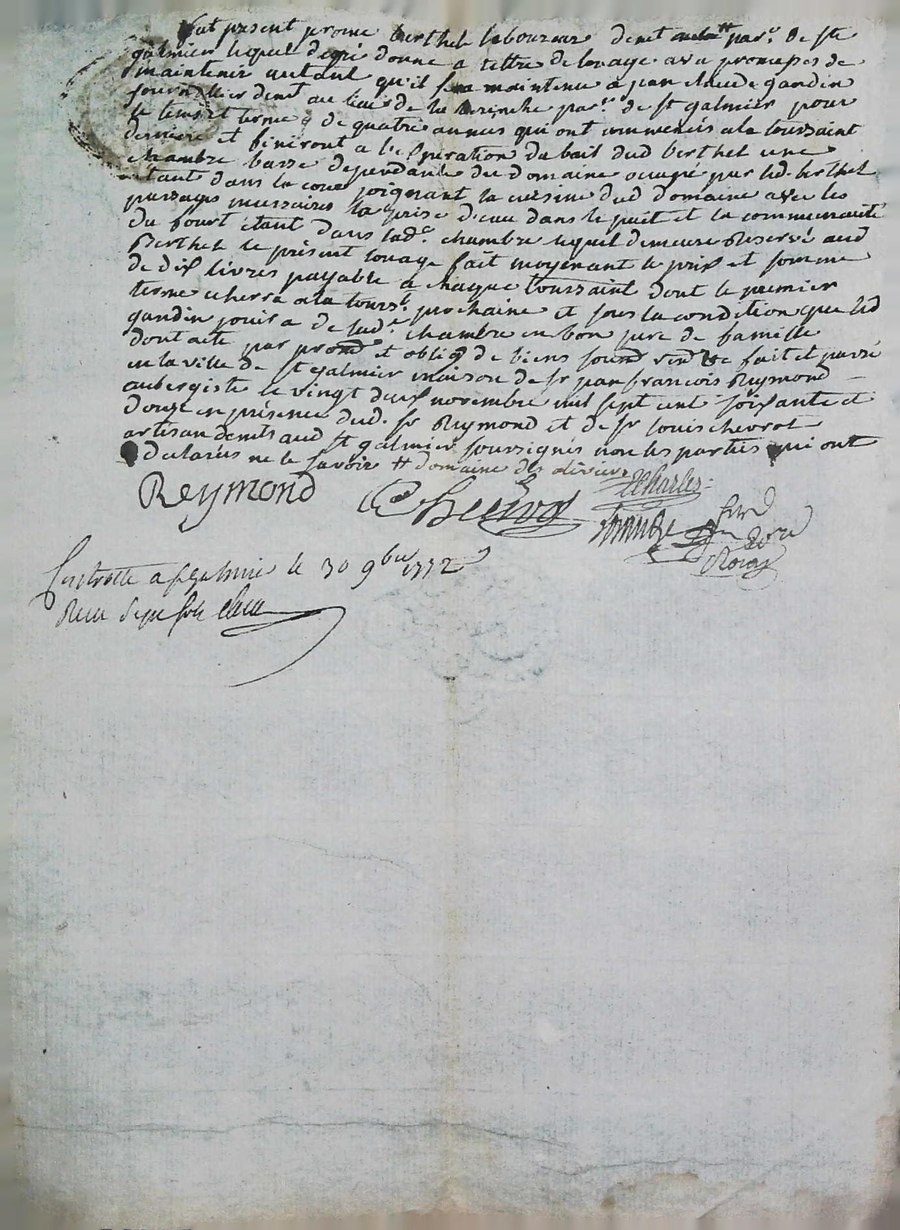 fut present jerome berthet laboureur demt au ++ par.e de st
galmier lequel de gré donne a tittre de louage avec promesses de
maintenir autant qu'il sera maintenu a jean claude gandin
journallier demt au lieu de la par.e de st galmier pour
le tems et terme de quatre années qui ont commencés a la toussaint
derniere et finiront a l'expiration du bail dud berthet une
chambre basse dependante du domaine occupé par led. berthet
etant dans la cour joignant la cuisine dud domaine avec les
passages necessaires la prise d'eau dans le puit et la communauté
du fourt etant dans lad.e chambre lequel demeure reservé aud
Berthet le présent louage fait moyenant le prix et somme
de dix livres payable a chaque toussaint dont le premier
terme echerra a la touss.t prochaine et sous la condition que led
gandin jouira de lad.e chambre en bon pere de famille
dont acte par prom et oblig de biens soum ren &c fait et passé
en la ville de st galmier maison de sr jean francois Reymond
aubergiste le vingt deux novembre mil sept cent soixante et
douze en présence dud. sr Reymond et de sr louis chevrot
artisan demts aud st galmier soussignés non les parties qui ont
declarées ne le savoir ++ domaine des
Reymond
Chevrot
Charles
Controllé a st galmier le 30 9bre 1772
Recu sols